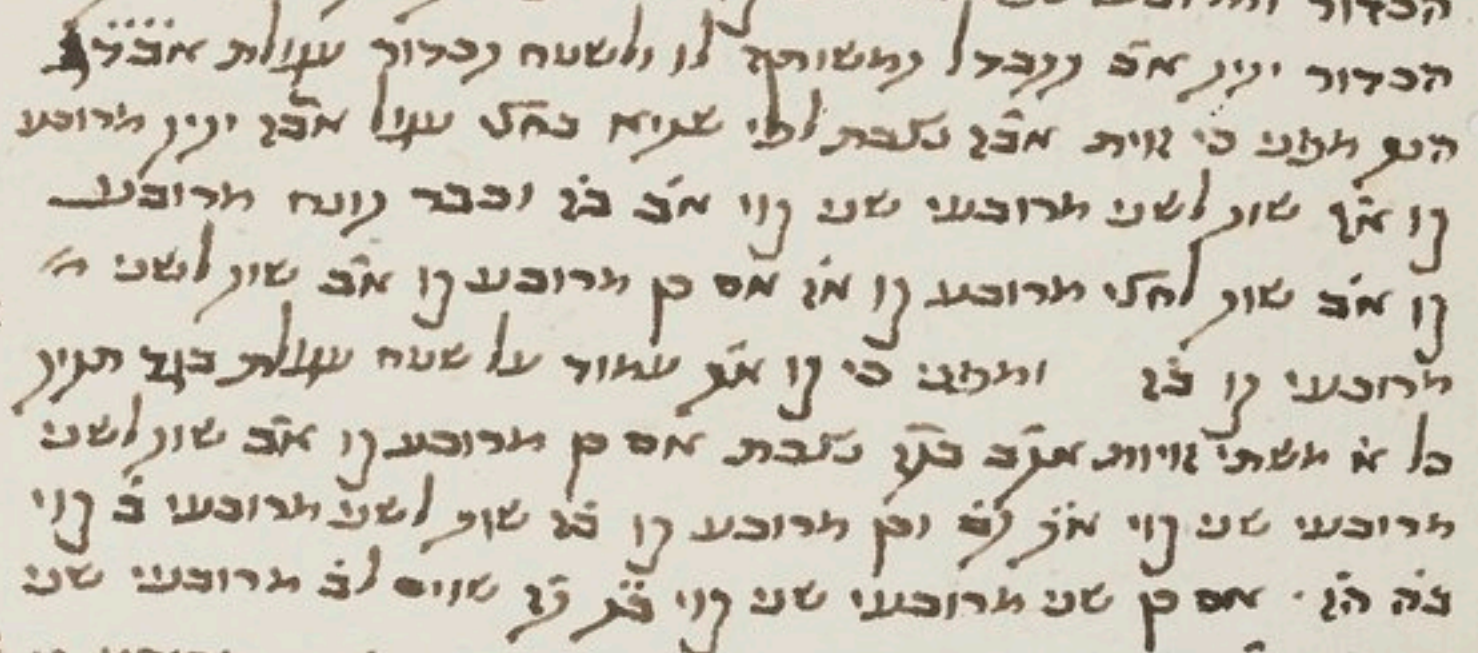 הכדור יהיה אב הנבדל המשותף לו ולשטח הכדור עגולת אבגד
הנה מפני כי זוית אבג נצבת לפי שהיא בחצי עגול אבג יהיה מרובע
קו אג שוה לשני מרובעי שני קוי אב בג וכבר הונח מרובע
קו אב שוה לחצי מרובע קו אג אם כן מרובע קו אב שוה לשני
מרובעי קו בג ומפני כי קו אה עמוד על שטח עגולת תהיה
כל א משתי זויות אהב בהג נצבת אם כן מרובע קו אב שוה לשני
מרובעי שני קוי אה הב וכן מרובע קו בג שוה לשני מרובעי ב קוי
בה הג . אם כן שני מרובעי שני קוי בה הג שוים לב מרובעי שני